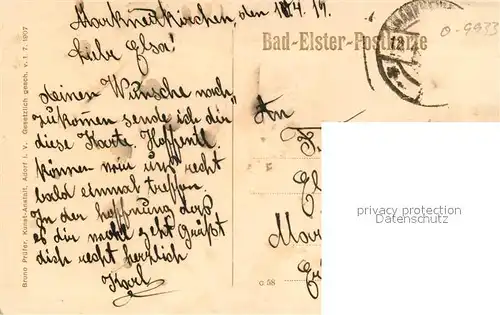 Markneukirchen, den 18.4.19.
Liebe Elsa!
deinen Wunsche nach
zukomen sende ich dir
diese Karte. Hoffentl.
können wir uns recht
bald einmal treffen.
In der hoffnung das
es dir nacht geht grüßt
dich recht herzlich
Karl
Bad-Elster-Postkarte
0-9933
An
F
El
Mar
privacy protection
Datenschutz
c 58
Bruno Prüfer, Kunst-Anstalt, Adorf i. V. Gesetzlich gesch. v. 1. 7. 1907